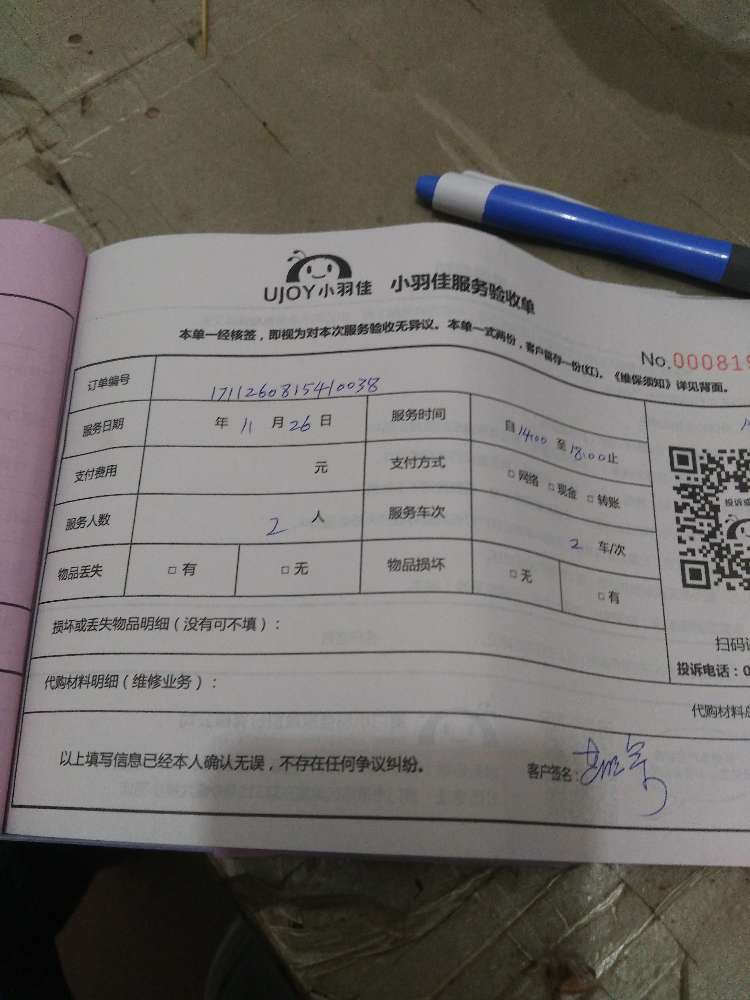 UJOY小羽佳 小羽佳服务验收单
本单一经核签，即视为对本次服务验收无异议。本单一式两份，客户留存一份(红)。《维保须知》详见背面。
No.000819
订单编号 1711260815410038
服务日期 年 11 月 26 日 服务时间 自 14:00 至 18:00 止
支付费用 元 支付方式 □ 网络 □ 现金 □ 转账
服务人数 2 人 服务车次 2 车/次
物品丢失 □ 有 □ 无 物品损坏 □ 无 □ 有
损坏或丢失物品明细（没有可不填）：
扫码
投诉电话：0
代购材料明细（维修业务）：
代购材料
以上填写信息已经本人确认无误，不存在任何争议纠纷。 客户签名：